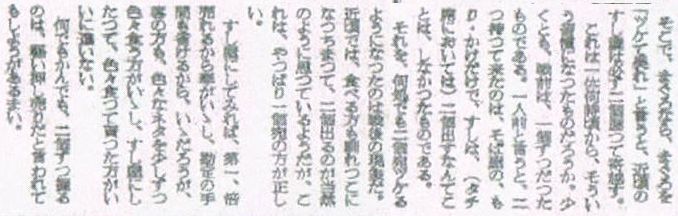 そこで、まぐろなら、まぐろを
「ツケて呉れ」と言うと、近頃の
すし屋は必ず二個握って寄越す。
これは一体何時頃から、そうい
う習慣になったものだろうか。少
くとも、戦前は、一個ずつだった
ものである。一人前と言うと、二
つ持って来たのは、そば屋の、も
り・かけだけで、すしは、（タチ
席においては）二個出すなんてこ
とは、しなかったものである。
それを、何処でも二個宛ツケる
ようになったのは戦後の現象だ。
近頃では、食べる方も馴れっこに
なっちまって、二個出るのが当然
のように思っているようだが、こ
れは、やっぱり一個宛の方が正し
い。
すし屋にしてみれば、第一、倍
売れるから商がいゝし、勘定の手
間も省けるから、いゝだろうが、
客の方も、色々なネタを少しずつ
色々食う方がいゝし、すし屋にし
たって、色々食って貰った方がい
いに違いない。
何でもかんでも、二個ずつ握る
のは、軽い押し売りだと言われて
もしようがあるまい。